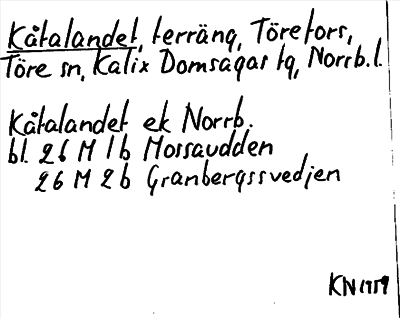 Kåtalandet, terräng, Törefors,
Töre sn, Kalix Domsagas tg, Norrb. l.
Kåtalandet ek Norrb.
bl. 26 M 1b Mossaudden
26 M 2b Granbergssvedjen
KN 1959